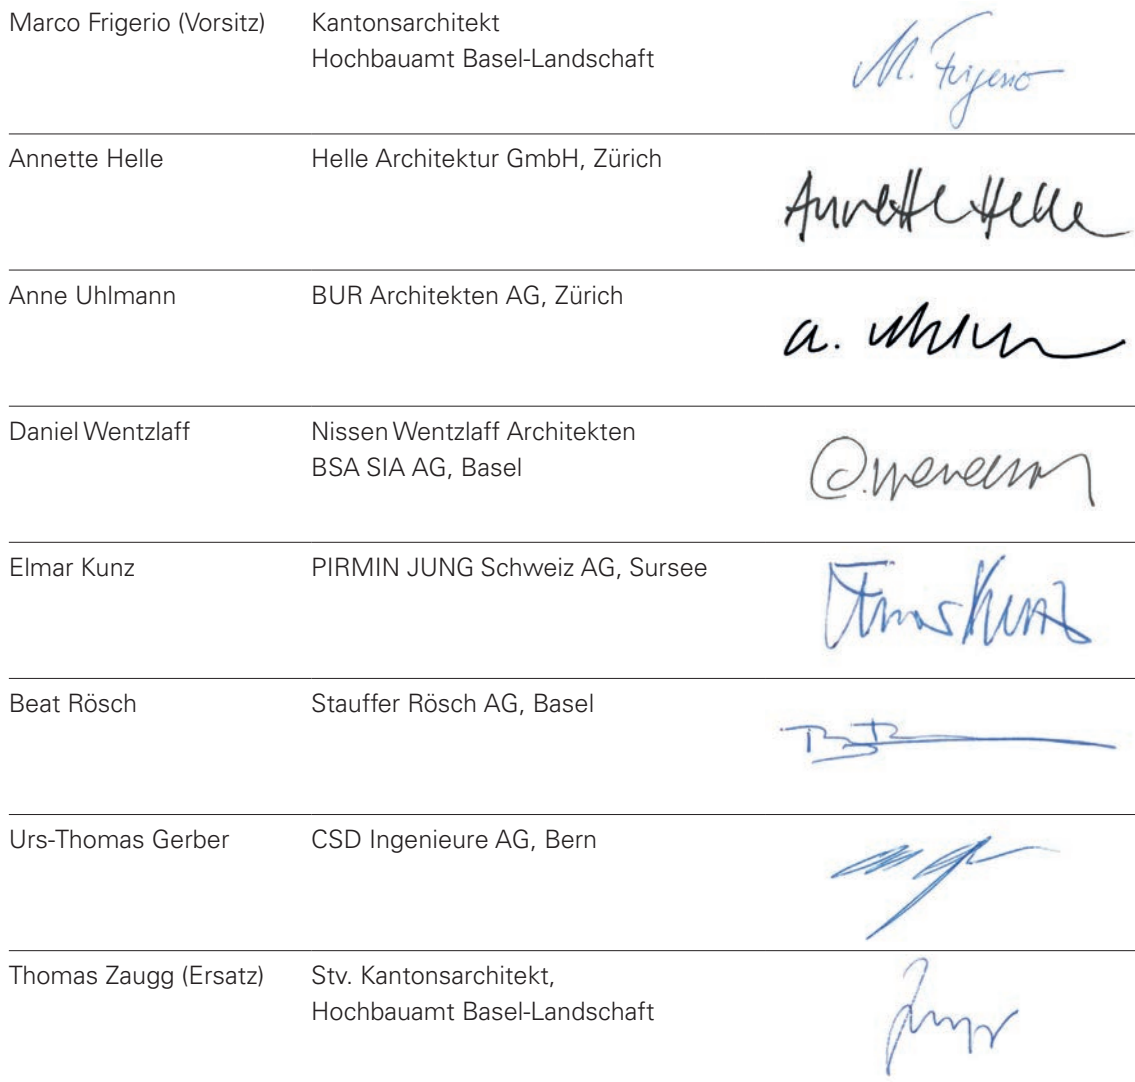 Marco Frigerio (Vorsitz) Kantonsarchitekt
Hochbauamt Basel-Landschaft
M. Frigerio
Annette Helle Helle Architektur GmbH, Zürich
Annette Helle
Anne Uhlmann BUR Architekten AG, Zürich
a. Uhlmann
Daniel Wentzlaff Nissen Wentzlaff Architekten
BSA SIA AG, Basel
Elmar Kunz PIRMIN JUNG Schweiz AG, Sursee
Elmar Kunz
Beat Rösch Stauffer Rösch AG, Basel
Urs-Thomas Gerber CSD Ingenieure AG, Bern
Thomas Zaugg (Ersatz) Stv. Kantonsarchitekt,
Hochbauamt Basel-Landschaft